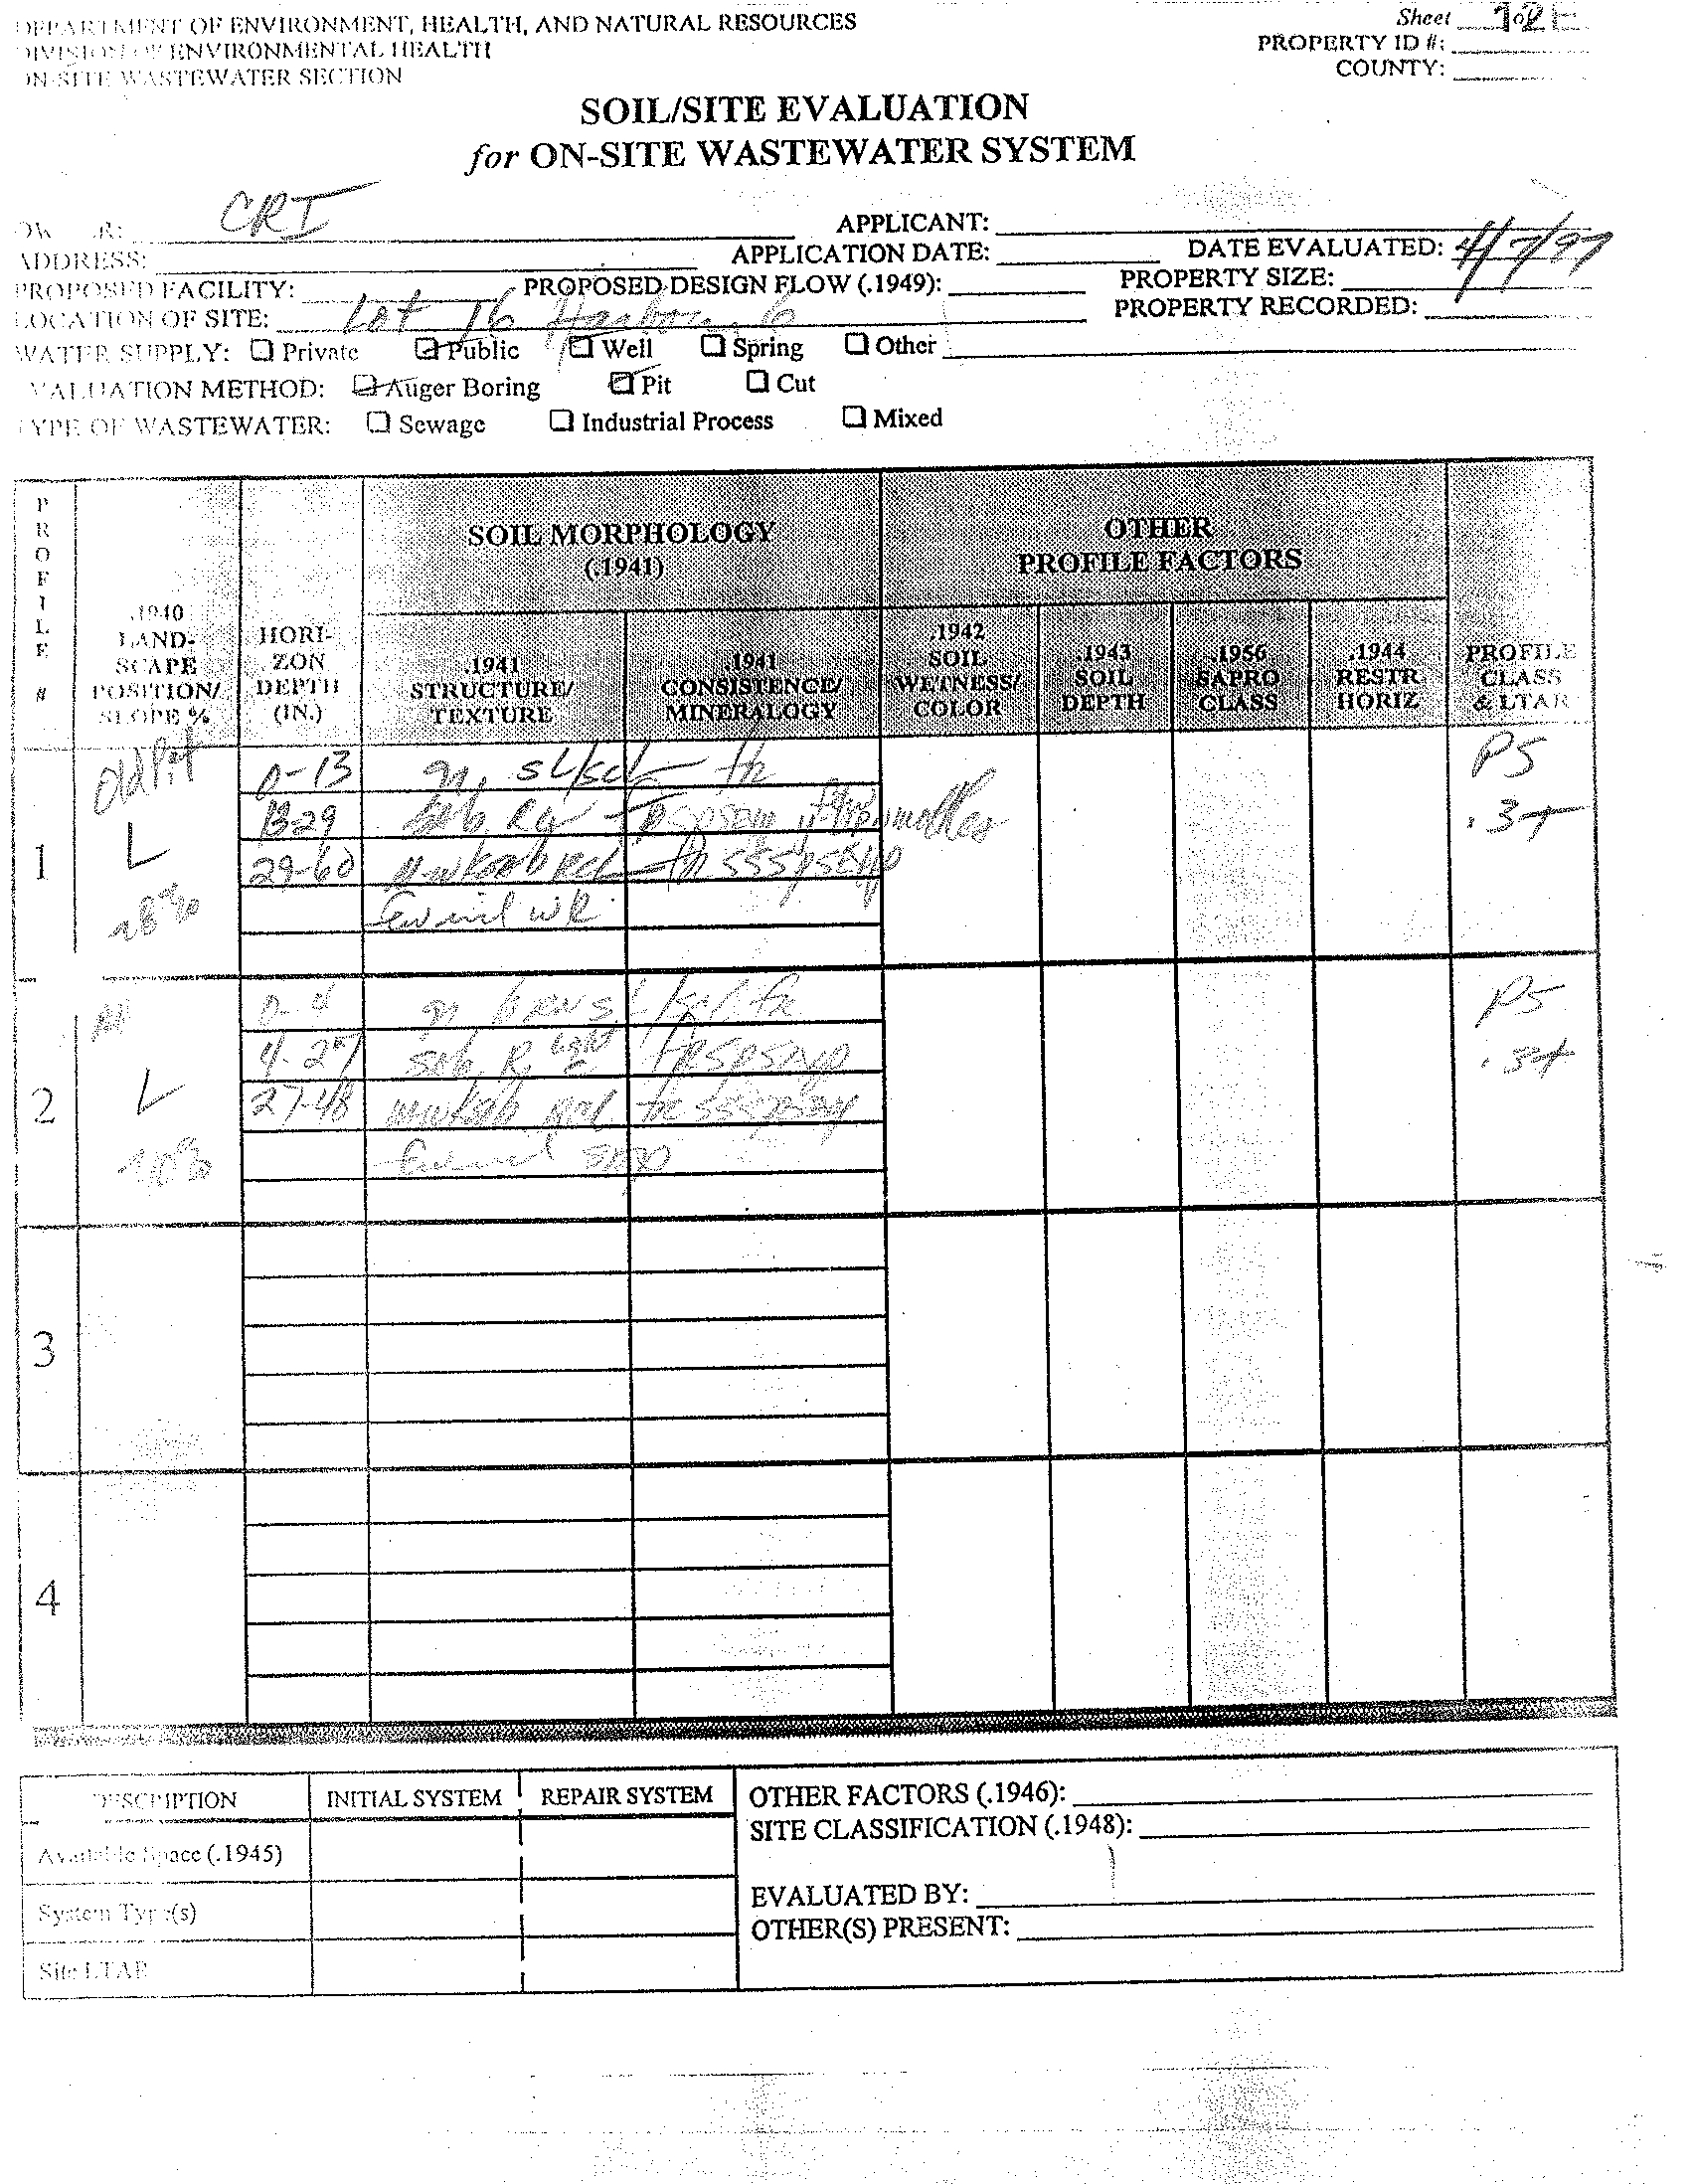 DEPARTMENT OF ENVIRONMENT, HEALTH, AND NATURAL RESOURCES
DIVISION OF ENVIRONMENTAL HEALTH
ON-SITE WASTEWATER SECTION
Sheet
PROPERTY ID #:
COUNTY:
SOIL/SITE EVALUATION
for ON-SITE WASTEWATER SYSTEM
OWNER: CRI
APPLICANT:
ADDRESS:
APPLICATION DATE:
DATE EVALUATED: 4/7/97
PROPOSED FACILITY:
PROPOSED DESIGN FLOW (.1949):
PROPERTY SIZE:
LOCATION OF SITE: Lot 16 Harbor 6
PROPERTY RECORDED:
WATER SUPPLY: Private Public Well Spring Other
EVALUATION METHOD: Auger Boring Pit Cut
TYPE OF WASTEWATER: Sewage Industrial Process Mixed
PROFILE #
.1940 LAND-SCAPE POSITION/ SLOPE %
HORI-ZON DEPTH (IN.)
SOIL MORPHOLOGY
(.1941)
.1941 STRUCTURE/ TEXTURE
.1941 CONSISTENCE/ MINERALOGY
OTHER
PROFILE FACTORS
.1942 SOIL WETNESS/ COLOR
.1943 SOIL DEPTH
.1956 SAPRO CLASS
.1944 RESTR HORIZ
PROFILE CLASS & LTAR
1
Old Pit
L
8%
0-13 gr, SL/scl fr
PS
13-29
.3+
29-60
2
L
10%
0-4 gr
PS
4-27 sbk R
.3+
27-48
3
4
DESCRIPTION INITIAL SYSTEM REPAIR SYSTEM
Available Space (.1945)
System Type(s)
Site LTAR
OTHER FACTORS (.1946):
SITE CLASSIFICATION (.1948):
EVALUATED BY:
OTHER(S) PRESENT: